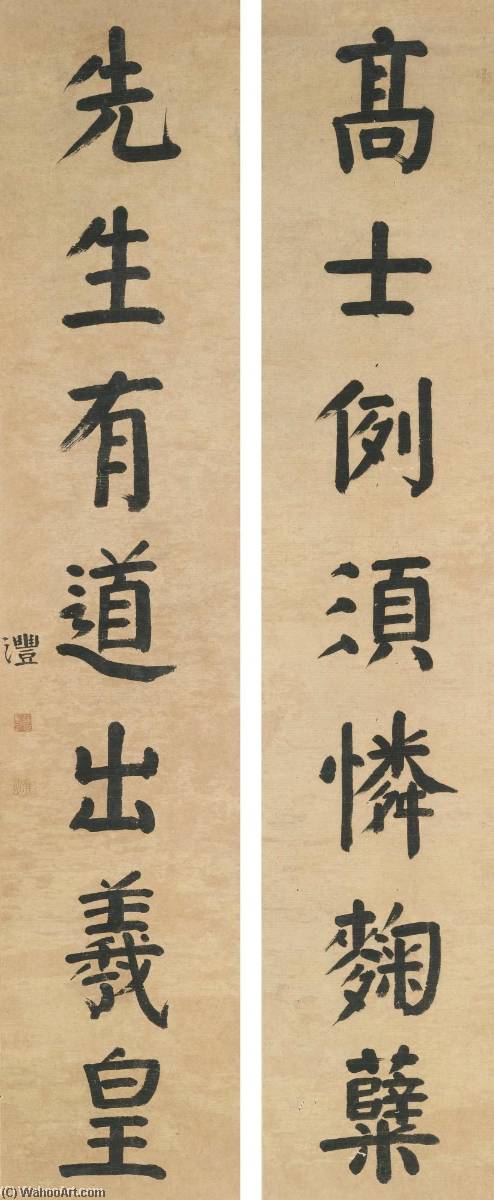 髙士例須憐麴糵
先生有道出羲皇
灃
(C) WahooArt.com